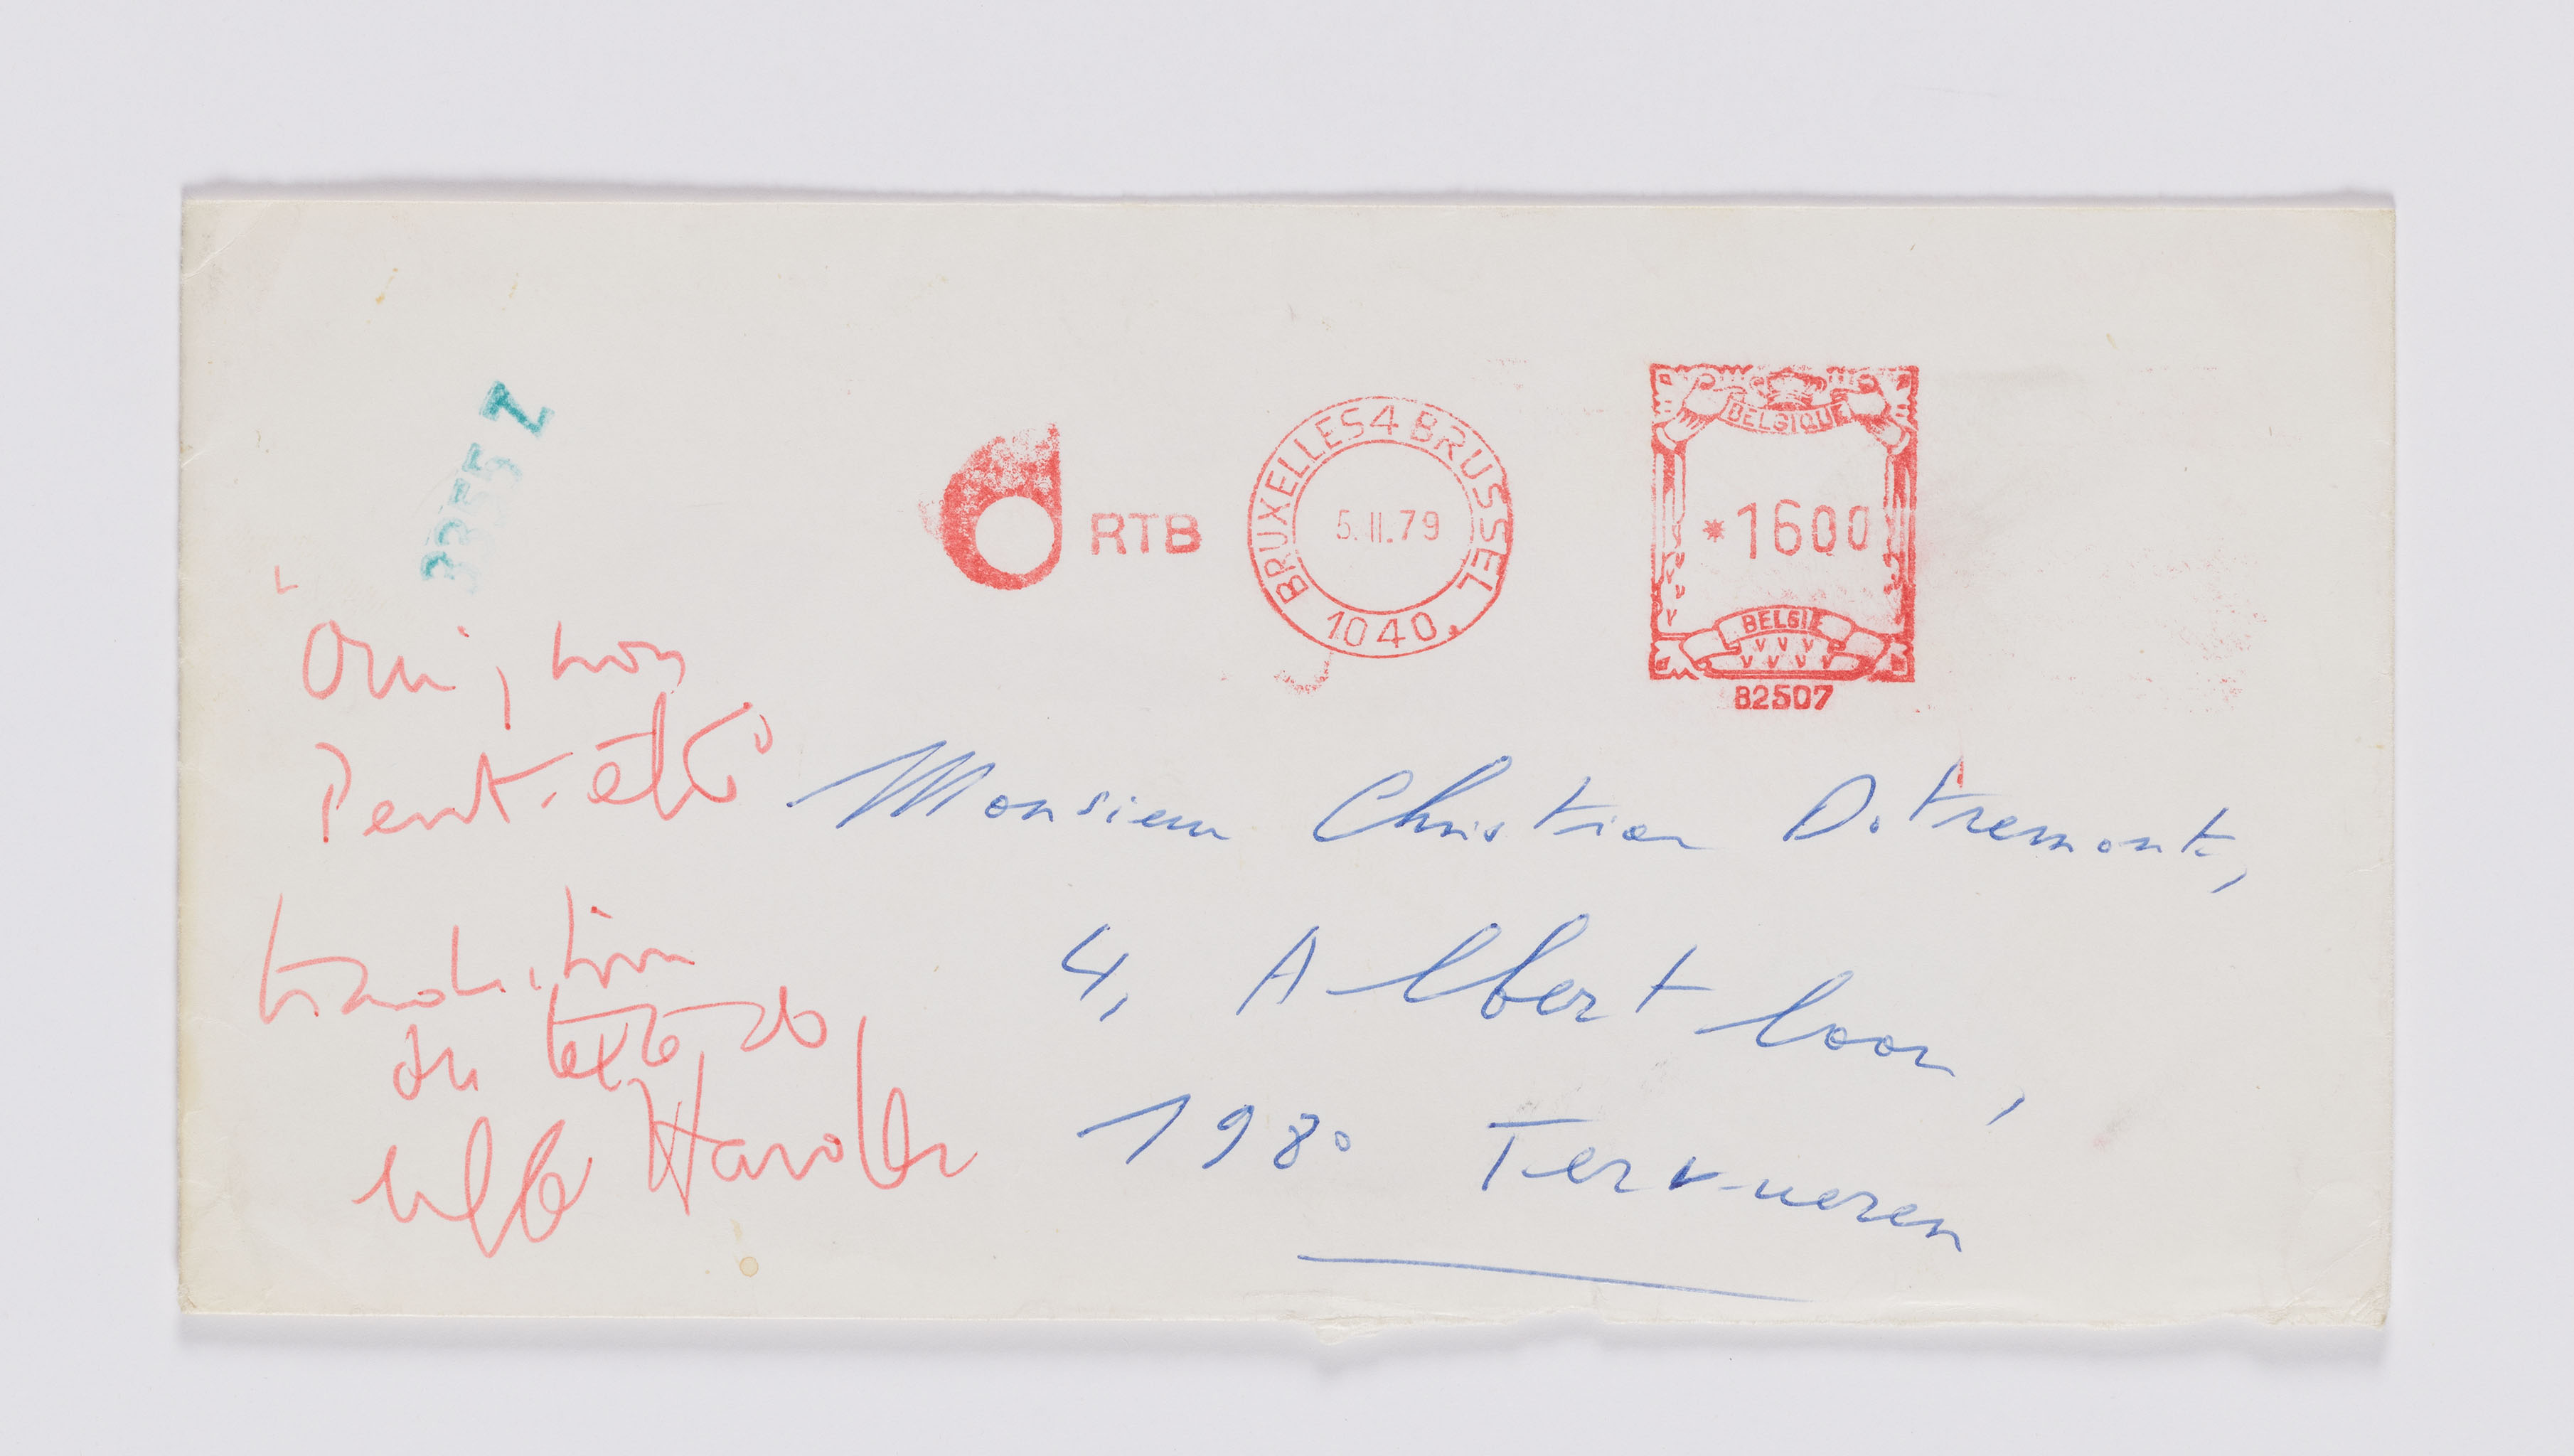 3355 Z
RTB
BRUXELLES 4 BRUSSEL
5.II.79
1040
BELGIQUE
*1600
BELGIE
82507
"Oui, non
Peut-être"
traduction
du texte de
Uffe Harder
Monsieur Christian Dotremont,
4, Albert laan,
1980 Tervueren